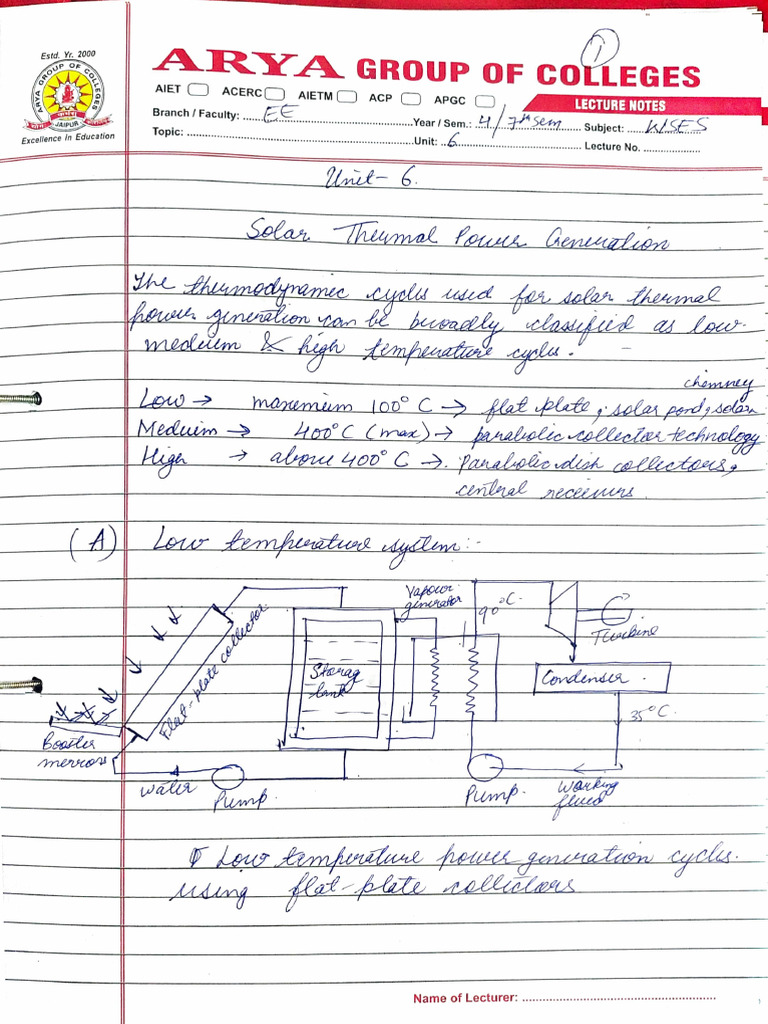 Estd. Yr. 2000
ARYA GROUP OF COLLEGES
JAIPUR
Excellence in Education
1
ARYA GROUP OF COLLEGES
AIET ACERC AIETM ACP APGC
LECTURE NOTES
Branch / Faculty: EE Year / Sem.: 4/7th sem Subject: WSES
Topic: Unit: 6 Lecture No.
Unit- 6.
Solar Thermal Power Generation
The thermodynamic cycles used for solar thermal
power generation can be broadly classified as low
medium & high temperature cycles.
chemney
Low → maxemium 100°C → flat plate, solar pond, solar
Meduim → 400°C (max) → parabolic collector technology
High → above 400°C → Parabolic dish collectors,
central receivers.
(A) Low temperature system:-
Vapour
generator
90°C.
Turbine
Flat-plate collector
Storag
tank
Condenser.
35°C.
Booster
merrors
Water
Pump.
Pump.
Working
flued
Low temperature power generation cycles.
using flat-plate collectors
Name of Lecturer: